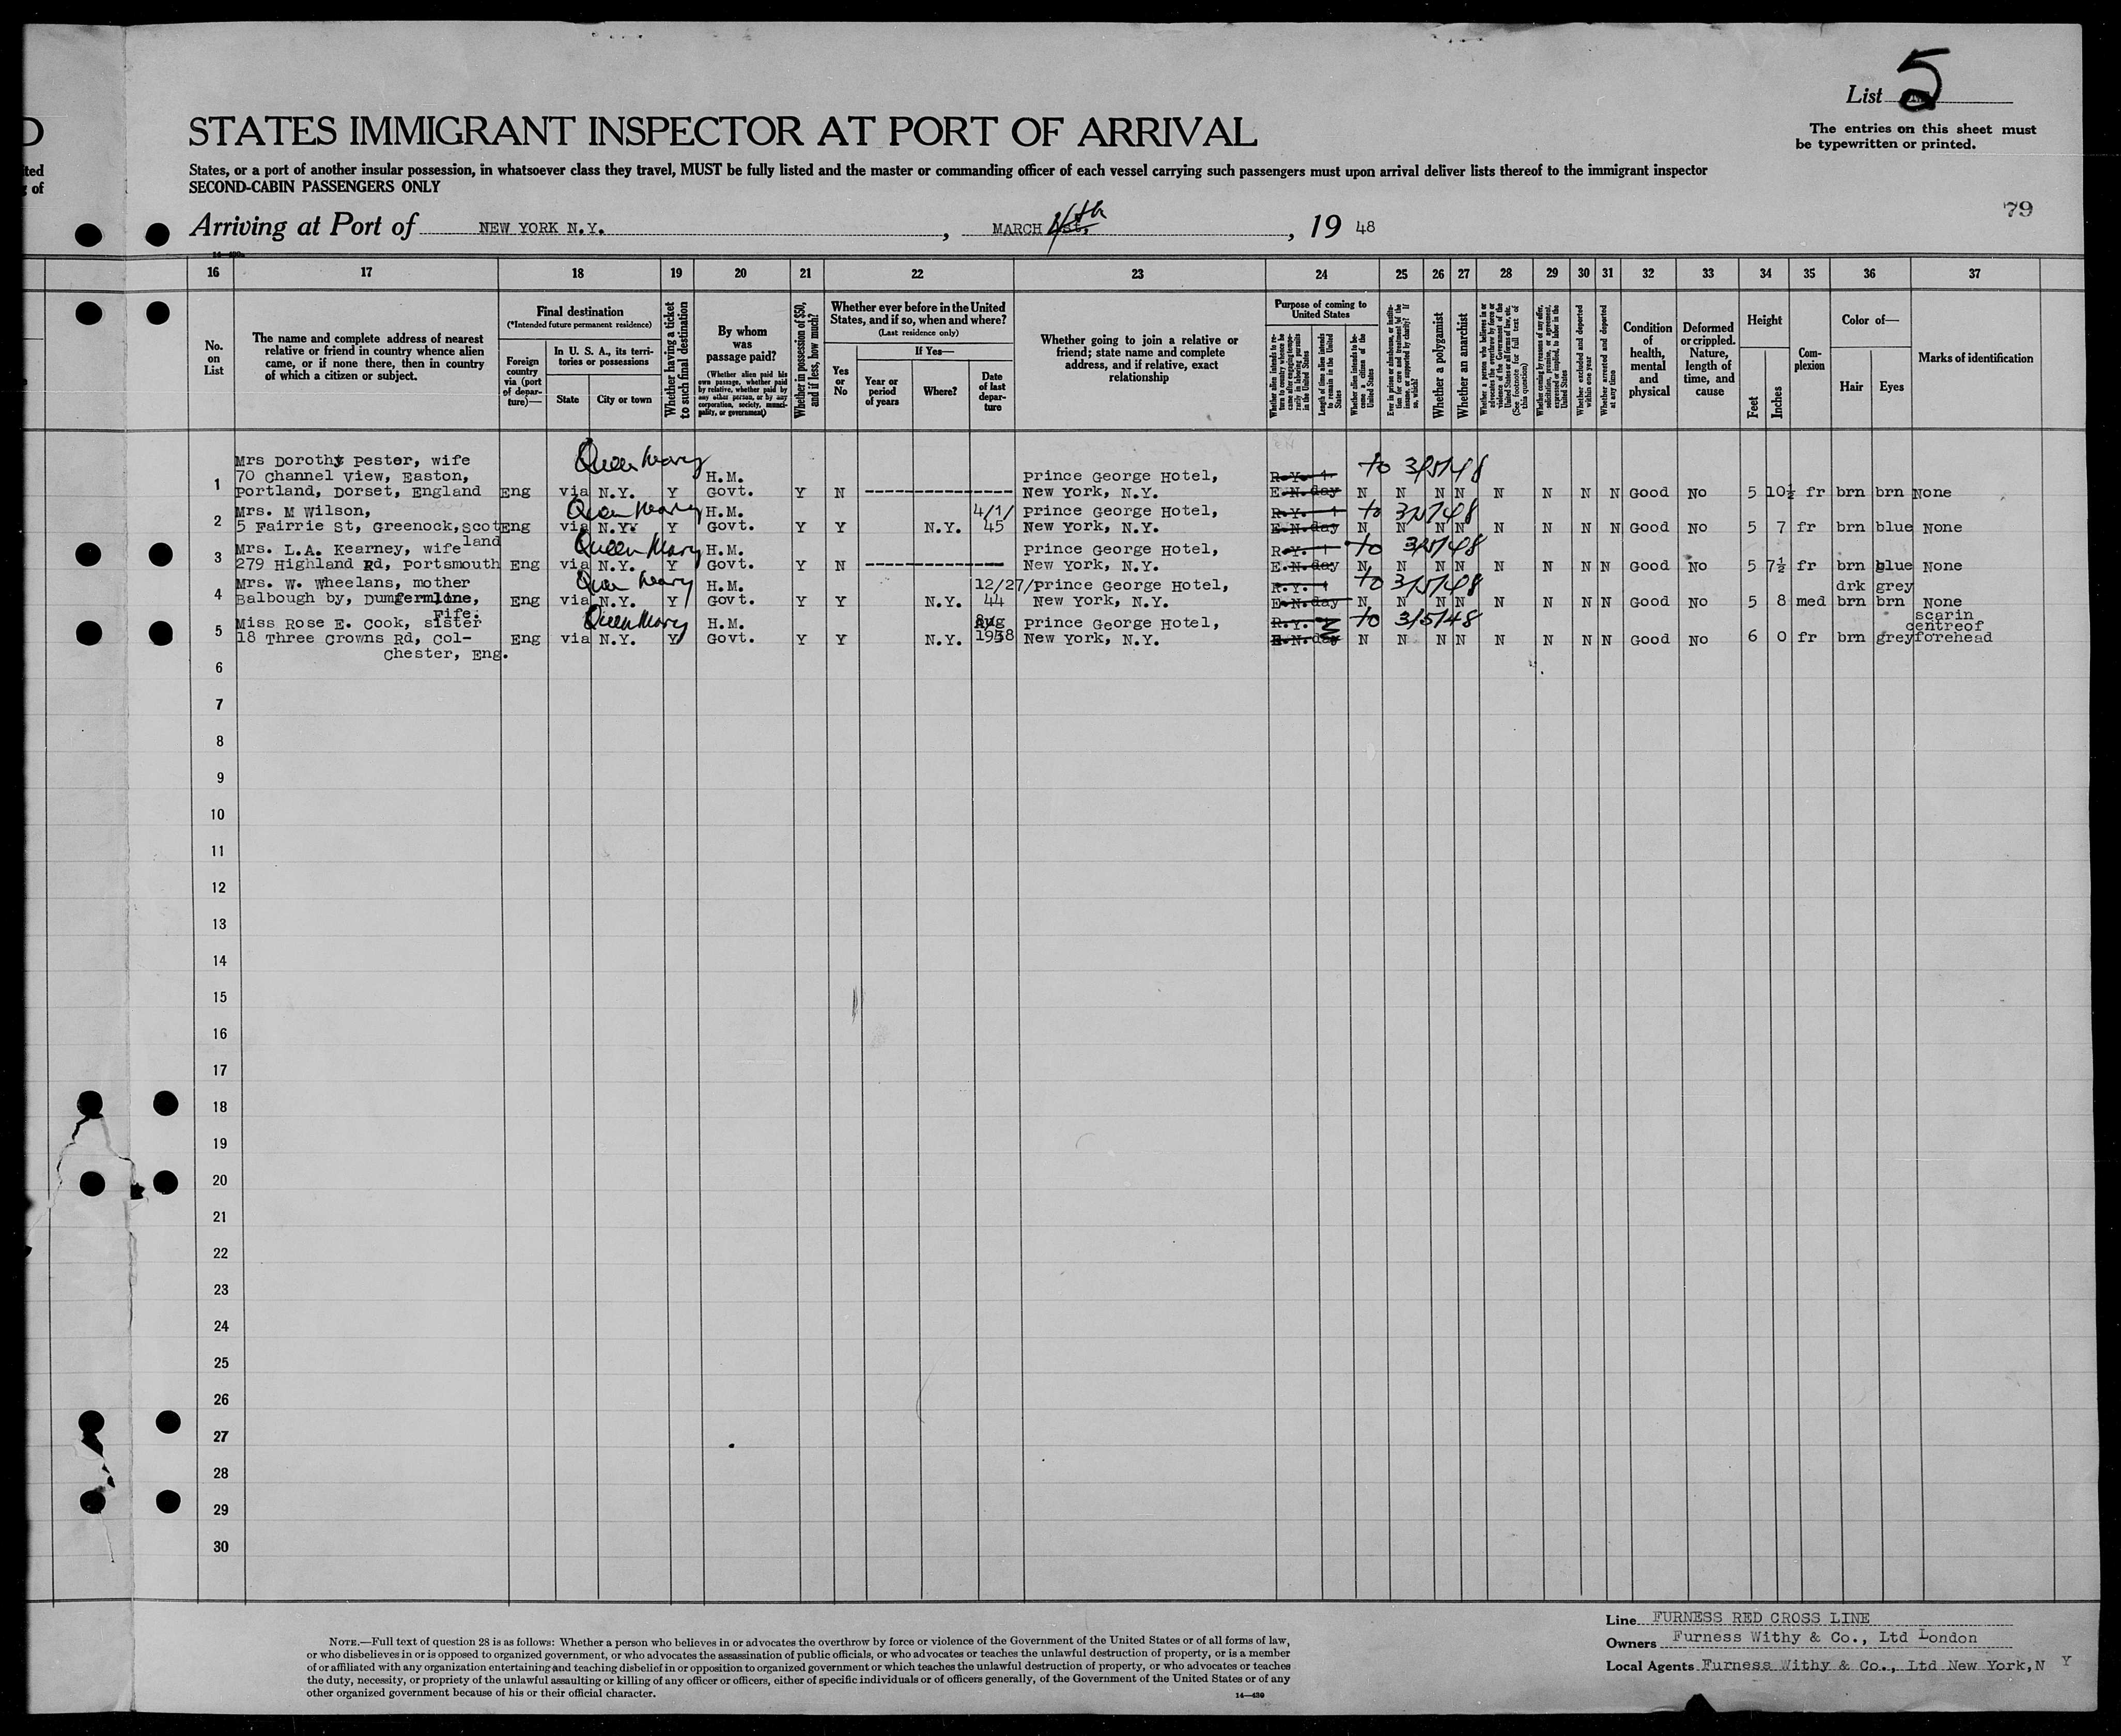 List 5
STATES IMMIGRANT INSPECTOR AT PORT OF ARRIVAL
The entries on this sheet must
be typewritten or printed.
States, or a port of another insular possession, in whatsoever class they travel, MUST be fully listed and the master or commanding officer of each vessel carrying such passengers must upon arrival deliver lists thereof to the immigrant inspector
SECOND-CABIN PASSENGERS ONLY
79
Arriving at Port of NEW YORK N.Y. , MARCH 4th , 19 48
16 17 18 19 20 21 22 23 24 25 26 27 28 29 30 31 32 33 34 35 36 37
No. on List
The name and complete address of nearest
relative or friend in country whence alien
came, or if none there, then in country
of which a citizen or subject.
Final destination
(*Intended future permanent residence)
Foreign country via (port of departure)—
In U. S. A., its territories or possessions
State
City or town
Whether having a ticket to such final destination
By whom was passage paid?
(Whether alien paid his own passage, whether paid by relative, whether paid by any other person, or by any corporation, society, municipality, or government)
Whether in possession of $50, and if less, how much?
Whether ever before in the United
States, and if so, when and where?
(Last residence only)
Yes or No
If Yes—
Year or period of years
Where?
Date of last departure
Whether going to join a relative or
friend; state name and complete
address, and if relative, exact
relationship
Purpose of coming to
United States
Length of time alien intends to remain in the United States
Whether alien intends to become a citizen of the United States
Whether a polygamist
Whether an anarchist
Whether excluded and deported within one year
Whether arrested and deported at any time
Condition of health, mental and physical
Deformed or crippled. Nature, length of time, and cause
Height
Feet
Inches
Complexion
Color of—
Hair
Eyes
Marks of identification
Mrs Dorothy Pester, wife Queen Mary to 3/5/48
70 Channel View, Easton, H.M. Prince George Hotel,
1 Portland, Dorset, England Eng via N.Y. Y Govt. Y N New York, N.Y. E.N. day N N N N N N N N Good No 5 10½ fr brn brn None
Mrs. M Wilson, Queen Mary H.M. 4/1/ Prince George Hotel, to 3/5/48
2 5 Fairrie St, Greenock, Scotland Eng via N.Y. Y Govt. Y Y N.Y. 45 New York, N.Y. E.N. day N N N N N N N N Good No 5 7 fr brn blue None
Mrs. L.A. Kearney, wife Queen Mary H.M. Prince George Hotel, to 3/5/48
3 279 Highland Rd, Portsmouth Eng via N.Y. Y Govt. Y N New York, N.Y. E.N. day N N N N N N N N Good No 5 7½ fr brn blue None
Mrs. W. Wheelans, mother Queen Mary H.M. 12/27/ Prince George Hotel, to 3/5/48 drk grey
4 Balbough by, Dumfermline, Fife. Eng via N.Y. Y Govt. Y Y N.Y. 44 New York, N.Y. E.N. day N N N N N N N N Good No 5 8 med brn brn None
Miss Rose E. Cook, sister Queen Mary H.M. Aug Prince George Hotel, to 3/5/48 scarin
5 18 Three Crowns Rd, Col- Eng via N.Y. Y Govt. Y Y N.Y. 1938 New York, N.Y. E.N. day N N N N N N N N Good No 6 0 fr brn grey centreof forehead
chester, Eng.
6
7
8
9
10
11
12
13
14
15
16
17
18
19
20
21
22
23
24
25
26
27
28
29
30
NOTE.—Full text of question 28 is as follows: Whether a person who believes in or advocates the overthrow by force or violence of the Government of the United States or of all forms of law,
or who disbelieves in or is opposed to organized government, or who advocates the assassination of public officials, or who advocates or teaches the unlawful destruction of property, or is a member
of or affiliated with any organization entertaining and teaching disbelief in or opposition to organized government or which teaches the unlawful destruction of property, or who advocates or teaches
the duty, necessity, or propriety of the unlawful assaulting or killing of any officer or officers, either of specific individuals or of officers generally, of the Government of the United States or of any
other organized government because of his or their official character.
14—430
Line FURNESS RED CROSS LINE
Owners Furness Withy & Co., Ltd London
Local Agents Furness Withy & Co., Ltd New York, N Y